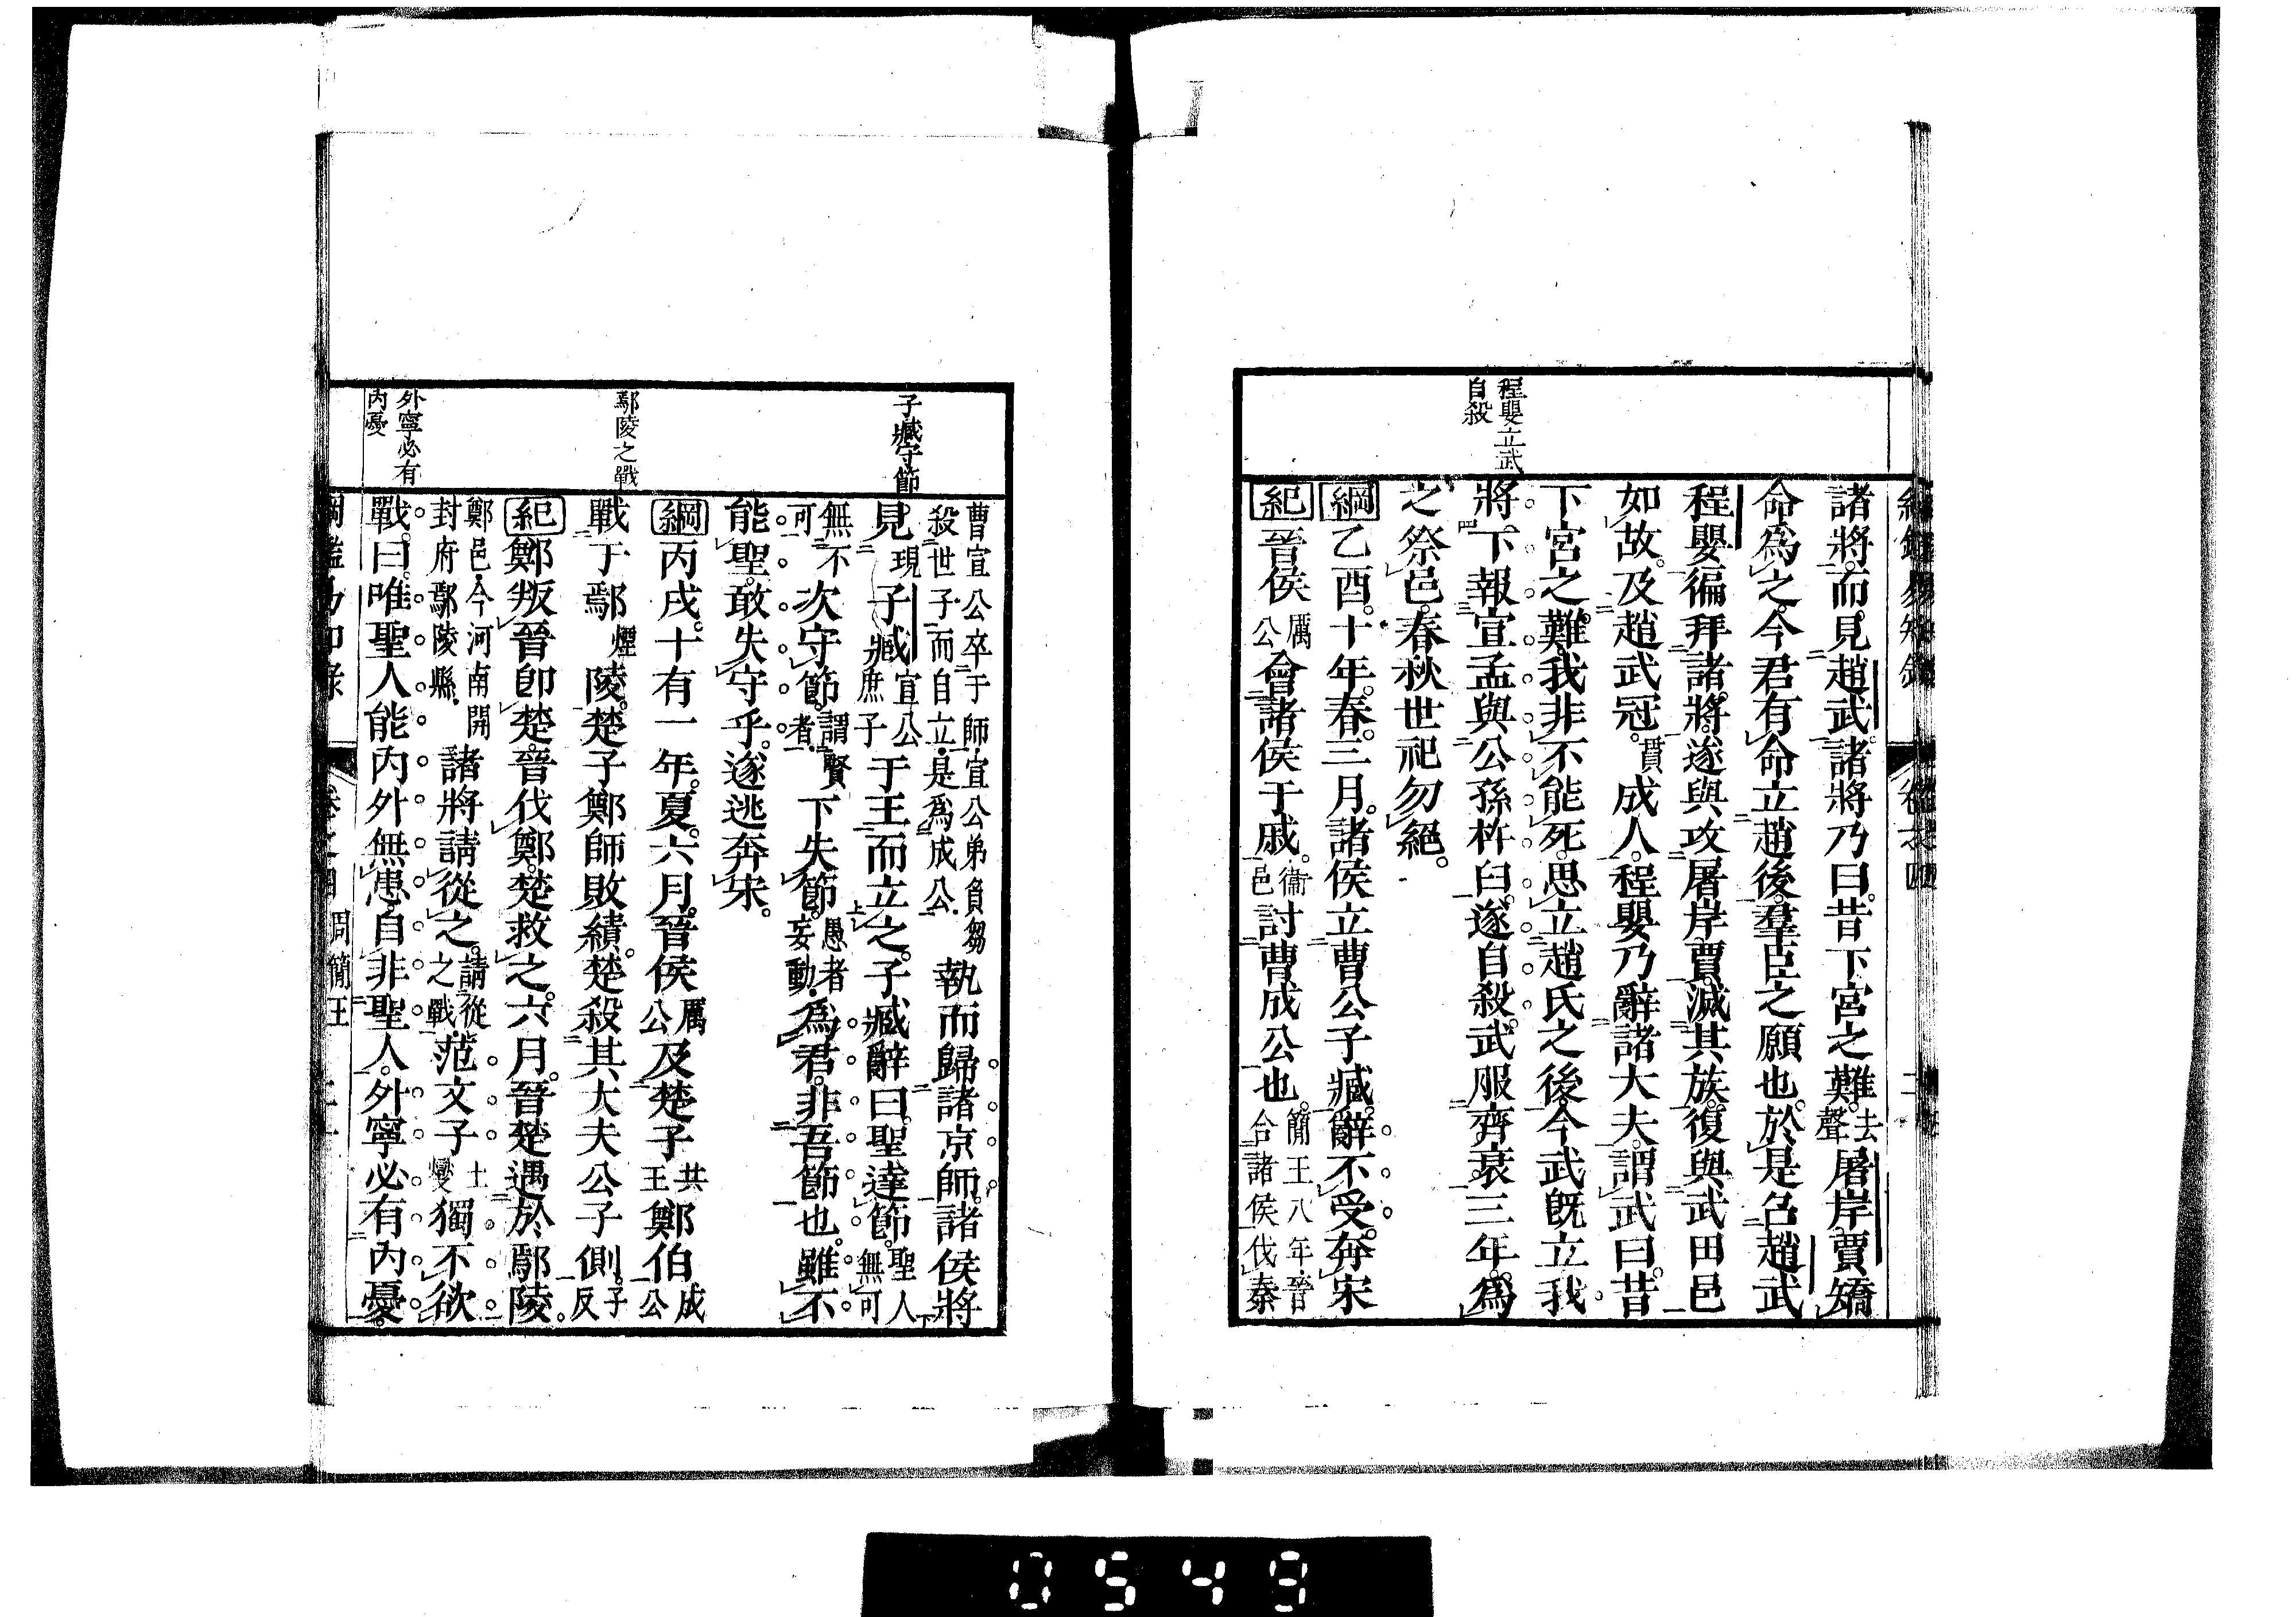 程嬰立武
自殺
諸將而見趙武諸將乃曰昔下宮之難去聲屠岸賈矯
命為之今君有命立趙後羣臣之願也於是召趙武
程嬰徧拜諸將遂與攻屠岸賈滅其族復與武田邑
如故及趙武冠貫成人程嬰乃辭諸大夫謂武曰昔
下宮之難我非不能死思立趙氏之後今武既立我
將下報宣孟與公孫杵臼遂自殺武服齊衰三年為
之祭邑春秋世祀勿絕
綱乙酉十年春三月諸侯立曹公子臧辭不受奔宋
紀晉侯厲公會諸侯于戚衞邑討曹成公也簡王八年晉合諸侯伐秦
子臧守節
鄢陵之戰
外寧必有
內憂
曹宣公卒于師宣公弟負芻殺世子而自立是為成公執而歸諸京師諸侯將
見現子臧宣公庶子于王而立之子臧辭曰聖達節聖人無可
無不可次守節謂賢者下失節愚者妄動為君非吾節也雖不
能聖敢失守乎遂逃奔宋
綱丙戌十有一年夏六月晉侯厲公及楚子共王鄭伯成公
戰于鄢煙陵楚子鄭師敗績楚殺其大夫公子側子反
紀鄭叛晉卽楚晉伐鄭楚救之六月晉楚遇於鄢陵
鄭邑今河南開封府鄢陵縣諸將請從之請從之戰范文子士燮獨不欲
戰曰唯聖人能內外無患自非聖人外寧必有內憂
周簡王
0549